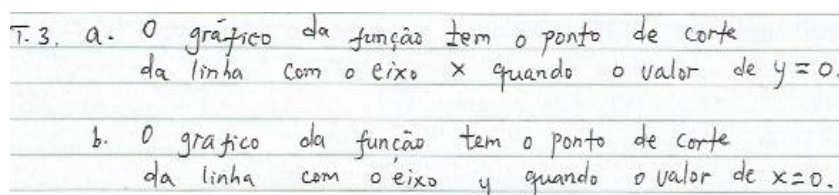 T.3. a. O gráfico da função tem o ponto de corte
da linha com o eixo x quando o valor de y = 0.
b. O grafico da função tem o ponto de corte
da linha com o eixo y quando o valor de x = 0.